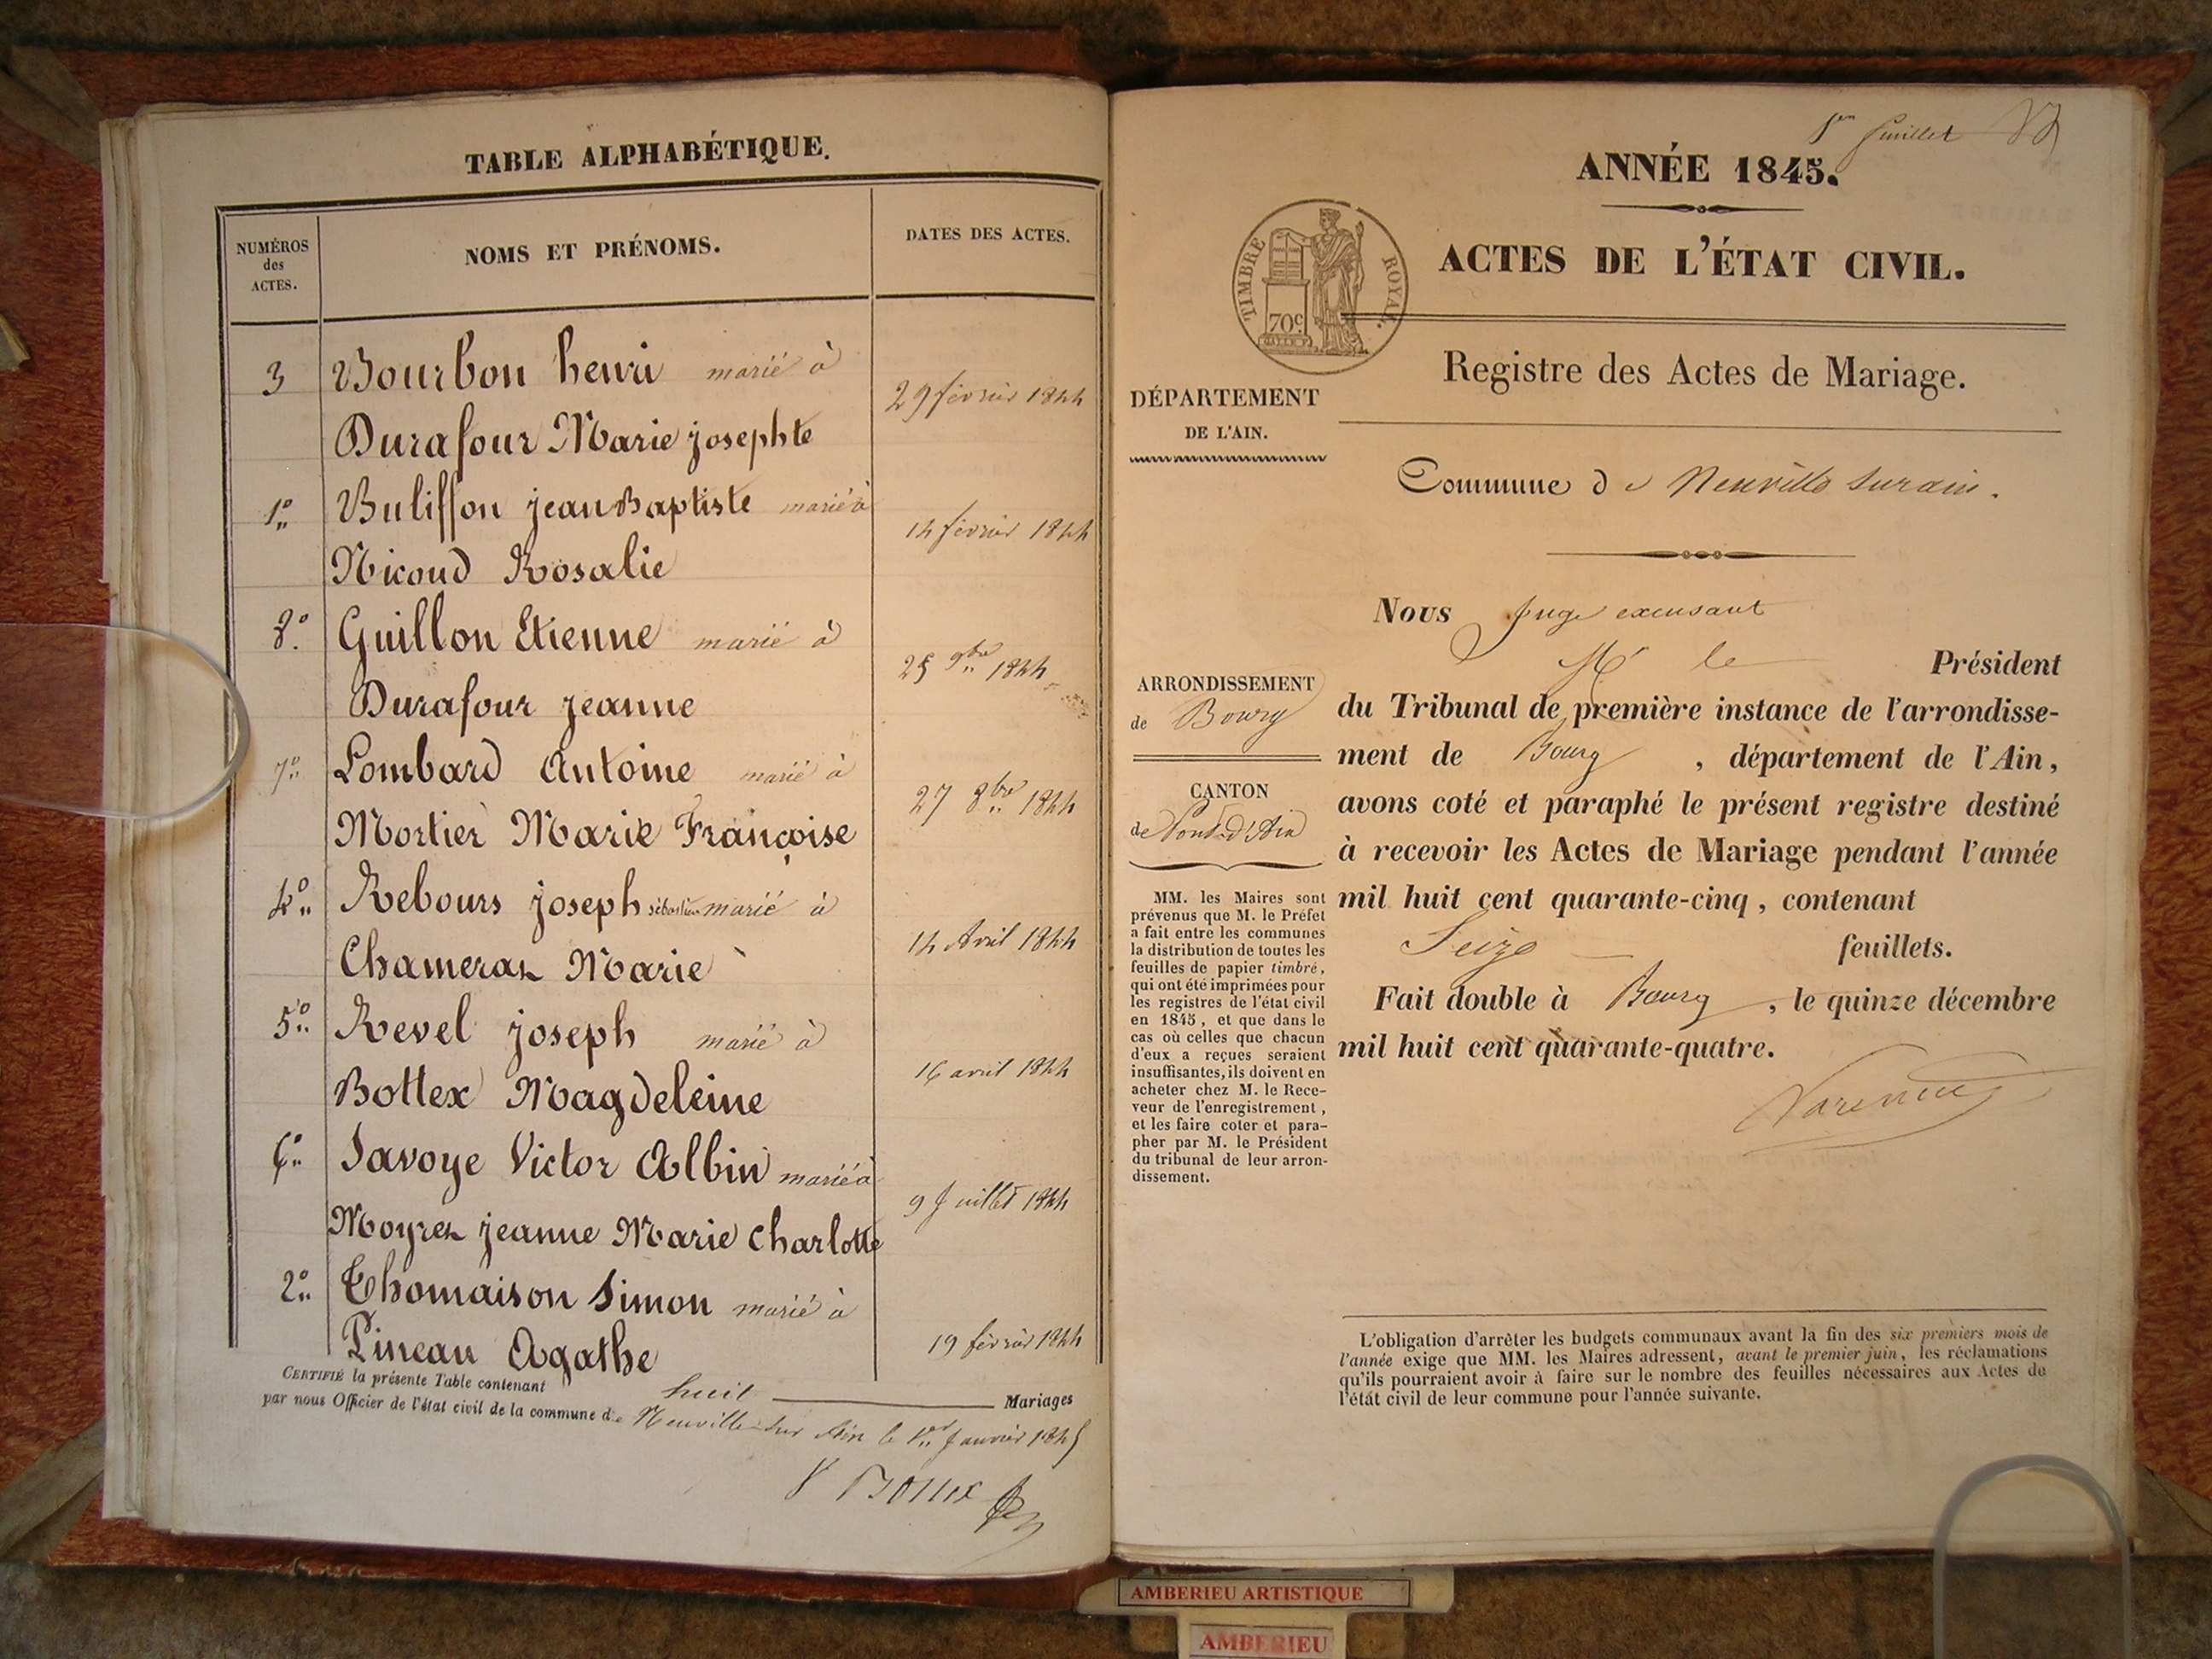 TABLE ALPHABÉTIQUE.
NUMÉROS
des
ACTES.
NOMS ET PRÉNOMS.
DATES DES ACTES.
3 Bourbon henri marié à
29 février 1844
Durafour Marie josephte
1º Bulisson jean Baptiste marié à
14 février 1844
Nicoud Rosalie
8º Guillon Etienne marié à
25 9bre 1844
Durafour jeanne
7º Lombard Antoine marié à
27 8bre 1844
Mortier Marie Françoise
4º Rebours joseph sébastien marié à
14 Avril 1844
Chameraz Marie
5º Revel joseph marié à
16 avril 1844
Bottex Magdeleine
6º Savoye Victor Albin marié à
9 Juillet 1844
Moyrez jeanne Marie Charlotte
2º Thomaison Simon marié à
19 février 1844
Pineau Agathe
CERTIFIÉ la présente Table contenant huit Mariages
par nous Officier de l'état civil de la commune de Neuville sur Ain le 1er Janvier 1845
Bottex
1er feuillet
ANNÉE 1845.
ACTES DE L'ÉTAT CIVIL.
TIMBRE ROYAL.
70c
Registre des Actes de Mariage.
DÉPARTEMENT
DE L'AIN.
Commune de Neuville sur ain.
ARRONDISSEMENT
de Bourg
CANTON
de Pont d'Ain
MM. les Maires sont
prévenus que M. le Préfet
a fait entre les communes
la distribution de toutes les
feuilles de papier timbré,
qui ont été imprimées pour
les registres de l'état civil
en 1845, et que dans le
cas où celles que chacun
d'eux a reçues seraient
insuffisantes, ils doivent en
acheter chez M. le Rece-
veur de l'enregistrement,
et les faire coter et para-
pher par M. le Président
du tribunal de leur arron-
dissement.
Nous Juge excusant
Mr le Président
du Tribunal de première instance de l'arrondisse-
ment de Bourg, département de l'Ain,
avons coté et paraphé le présent registre destiné
à recevoir les Actes de Mariage pendant l'année
mil huit cent quarante-cinq, contenant
Seize feuillets.
Fait double à Bourg, le quinze décembre
mil huit cent quarante-quatre.
L'obligation d'arrêter les budgets communaux avant la fin des six premiers mois de
l'année exige que MM. les Maires adressent, avant le premier juin, les réclamations
qu'ils pourraient avoir à faire sur le nombre des feuilles nécessaires aux Actes de
l'état civil de leur commune pour l'année suivante.
AMBERIEU ARTISTIQUE
AMBERIEU